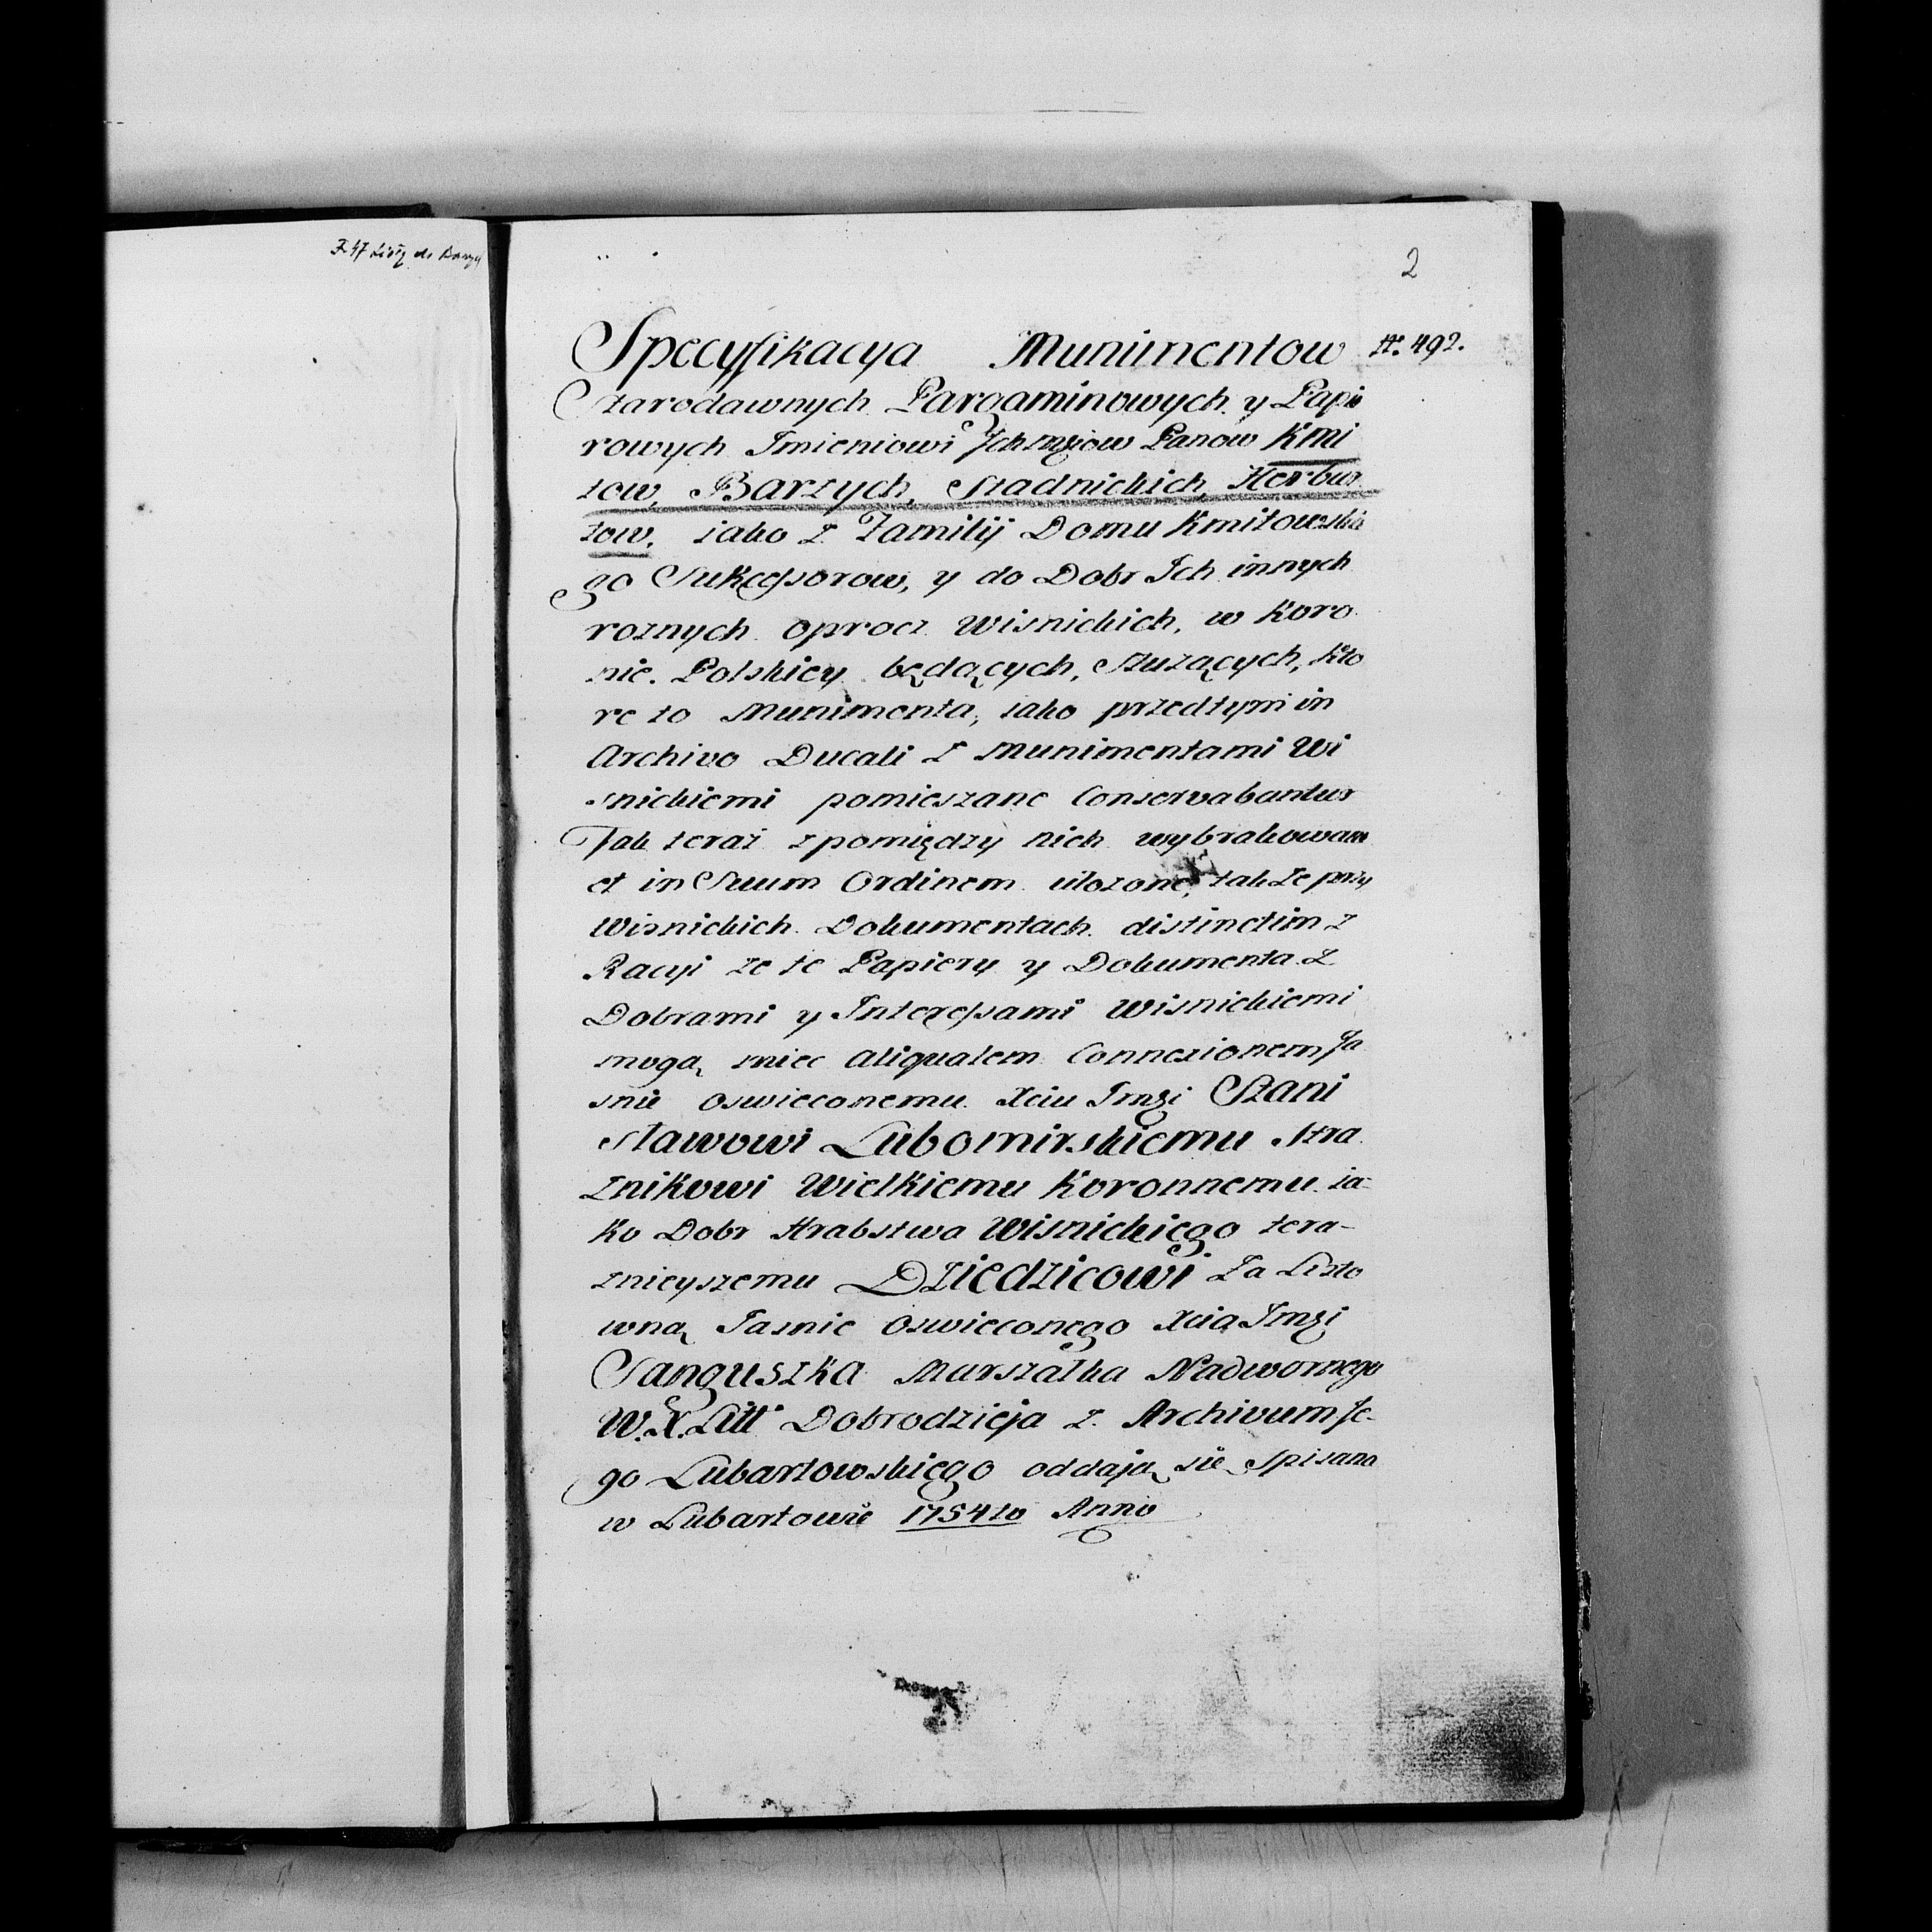 F. 47 Listy do Barzy
2
Specyfikacya Munimentow N°. 492.
Starodawnych Pargaminowych y Papi
rowych Imieniowi Ichmciow Panow Kmi
tow, Barzych, Stadnickich, Herbur
tow, iako z Familij Domu Kmitowskie
go Sukcessorow, y do Dobr Ich innych
roznych oprocz Wisnickich, w Koro
nie Polskiey będących, Służących, kto
re to Munimenta, iako przedtym in
Archivo Ducali z Munimentami Wi
snickiemi pomieszane Conservabantur
Tak teraz z pomiędzy nich wybrakowane
et in Suum Ordinem ułozone, takze przy
Wisnickich Dokumentach distinctim z
Racyi ze te Papiery y Dokumenta z
Dobrami y Interessami Wisnickiemi
mogą miec aliqualem Connexionem Ja
snie Oswieconemu Xciu Jmci Stani
sławowi Lubomirskiemu Stra
znikowi Wielkiemu Koronnemu ia-
ko Dobr Hrabstwa Wisnickiego tera-
znieyszemu Dziedzicowi Za Listo
wną Jasnie Oswieconego Xcia Jmci
Sanguszka Marszałka Nadwornego
W. X. Litt° Dobrodzieja z Archivum Je-
go Lubartowskiego oddają się Spisana
w Lubartowie 1754to Anno